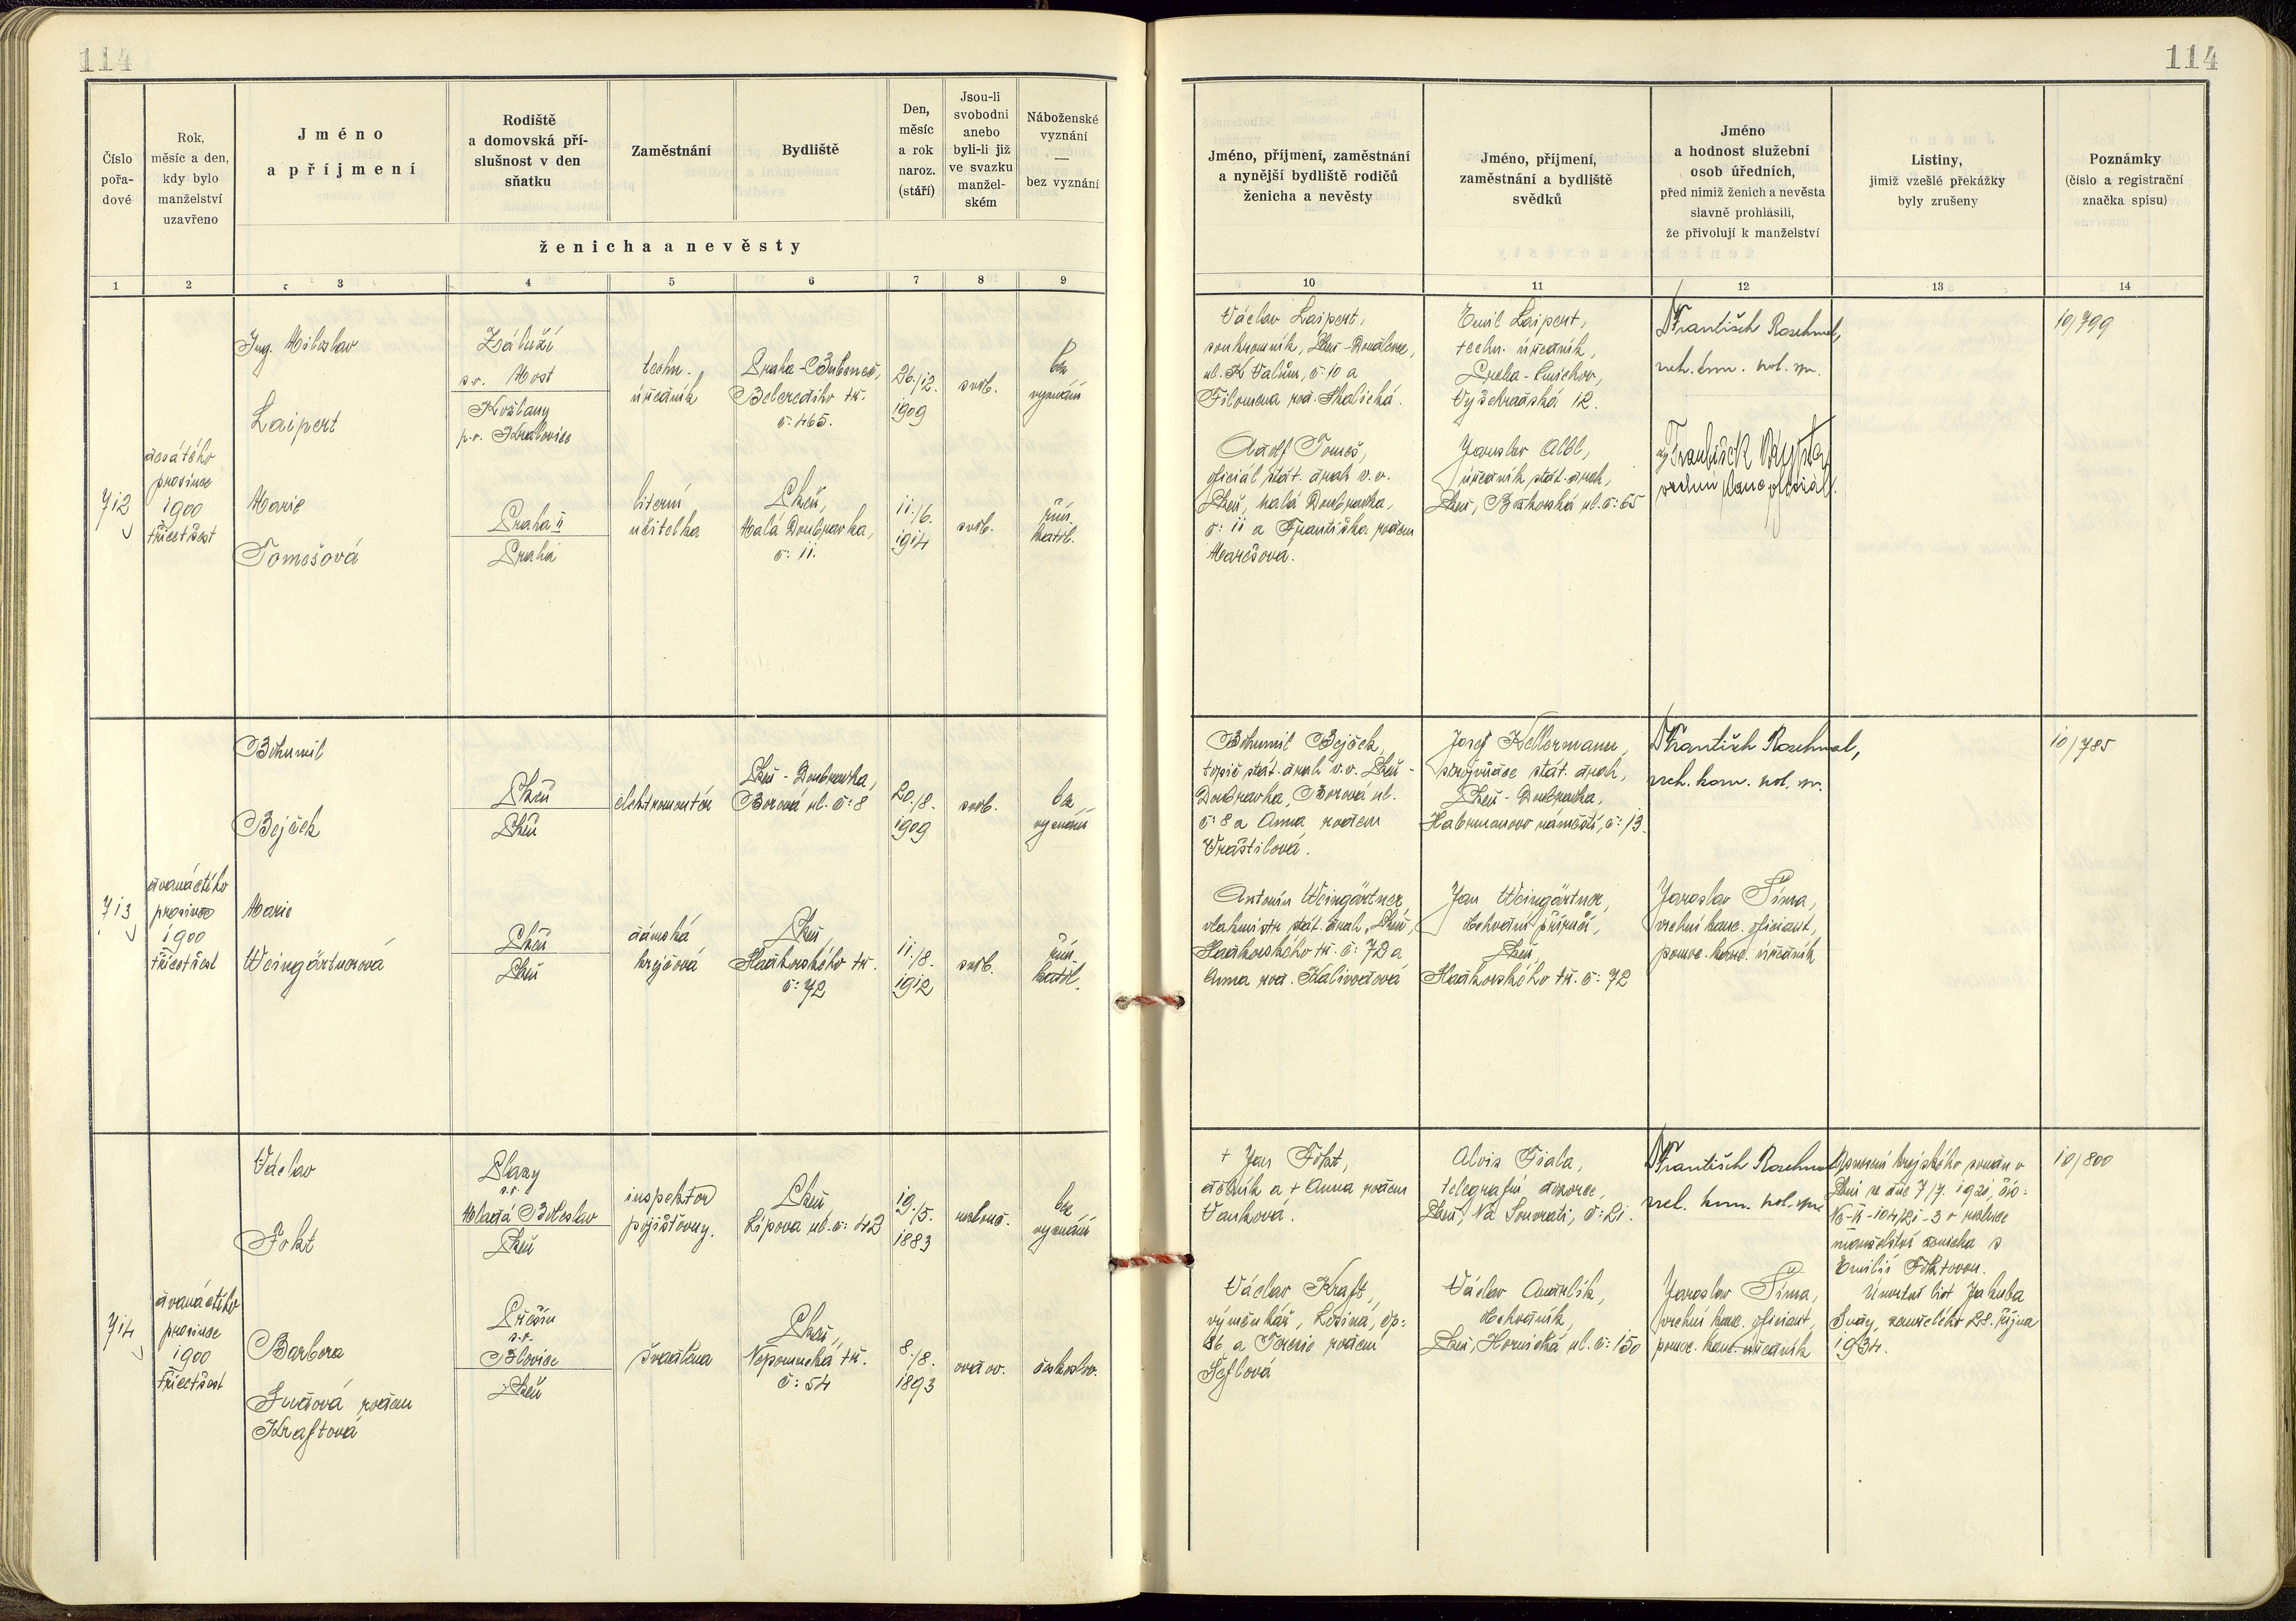 114
114
Číslo
pořa-
dové
Rok,
měsíc a den,
kdy bylo
manželství
uzavřeno
Jméno
a příjmení
Rodiště
a domovská pří-
slušnost v den
sňatku
Zaměstnání
Bydliště
Den,
měsíc
a rok
naroz.
(stáří)
Jsou-li
svobodni
anebo
byli-li již
ve svazku
manžel-
ském
Náboženské
vyznání
—
bez vyznání
ženicha a nevěsty
Jméno, příjmení, zaměstnání
a nynější bydliště rodičů
ženicha a nevěsty
Jméno, příjmení,
zaměstnání a bydliště
svědků
Jméno
a hodnost služební
osob úředních,
před nimiž ženich a nevěsta
slavně prohlásili,
že přivolují k manželství
Listiny,
jimiž vzešlé překážky
byly zrušeny
Poznámky
(číslo a registrační
značka spisu)
1 2 3 4 5 6 7 8 9 10 11 12 13 14
712
desátého
prosince
1900
třicetšest
Ing. Miloslav
Laipert
Záluží
s.o. Most
Kožlany
p.o. Kralovice
techn.
úředník
Praha-Bubeneč,
Belcrediho tř.
č: 465.
26./12.
1909
svob.
bez
vyznání
Marie
Tomešová
Praha II
Praha
literní
učitelka
Plzeň,
Malá Doubravka,
č: 11.
11./6.
1914
svob.
řím.
katol.
Václav Laipert,
soukromník, Plzeň-Doudlevce,
ul. K Valům, č: 10 a
Filomena roz. Skalická.
Adolf Tomeš,
oficiál stát. drah v.v.
Plzeň, Malá Doubravka,
č: 11 a Františka rodem
Marešová.
Emil Laipert,
techn. úředník,
Praha-Smíchov,
Vyšehradská 12.
Jaroslav Albl,
úředník stát. drah,
Plzeň, ul. č: 65
František
vrch. kom. pol. spr.
František
10/799
713
dvanáctého
prosince
1900
třicetšest
Bohumil
Bejček
Plzeň
Plzeň
elektromontér
Plzeň - Doubravka,
Borová ul. č: 8
20./8.
1909
svob.
bez
vyznání
Marie
Weingärtnerová
Plzeň
Plzeň
dámská
krejčová
Plzeň,
Sladkovského tř.
č: 72
11./8.
1912
svob.
řím.
katol.
Bohumil Bejček,
topič stát. drah v.v. Plzeň-
Doubravka, Borová ul.
č: 8 a Anna rodem
Vraštilová.
Antonín Weingärtner,
vlakmistr stát. drah, Plzeň,
Sladkovského tř. č: 72 a
Anna roz. Kalivodová
Josef Kellermann,
strojvůdce stát. drah,
Plzeň - Doubravka,
Habrmanovo náměstí, č: 13.
Jan Weingärtner,
obchodní příručí,
Plzeň,
Sladkovského tř. č: 72
František
vrch. kom. pol. spr.
Jaroslav Šíma,
vrchní kanc. oficiant,
pomoc. kanc. úředník
10/785
714
dvanáctého
prosince
1900
třicetšest
Václav
Fokt
Plazy
s.o.
Mladá Boleslav
Plzeň
inspektor
pojišťovny.
Plzeň
Lípová ul. č: 42
19./5.
1883
rozlouč.
bez
vyznání
Barbora
Sudová rodem
Kraftová
s.o.
Blovice
Plzeň
švadlena
Plzeň,
Nepomucká tř.
č: 54
8./8.
1893
ovdov.
českoslov.
+ Jan Fokt,
dělník a + Anna rodem
Vaňková.
Václav Kraft,
výměnkář, Losiná, čp:
86 a Terezie rodem
Šeflová
Alois Fiala,
telegrafní dozorce,
Plzeň, Na Souvrati, č: 21.
Václav
obchodník,
Plzeň, Hořická ul. č: 150
František
vrch. kom. pol. spr.
Jaroslav Šíma,
vrchní kanc. oficiant,
pomoc. kanc. úředník
krajského soudu v
Plzni ze dne 7/7. 1921, čís:
o rozluce
manželství ženicha s
Emilií Foktovou.
Úmrtní list Jakuba
Sudy, zemřelého 28. října
1934.
10/800